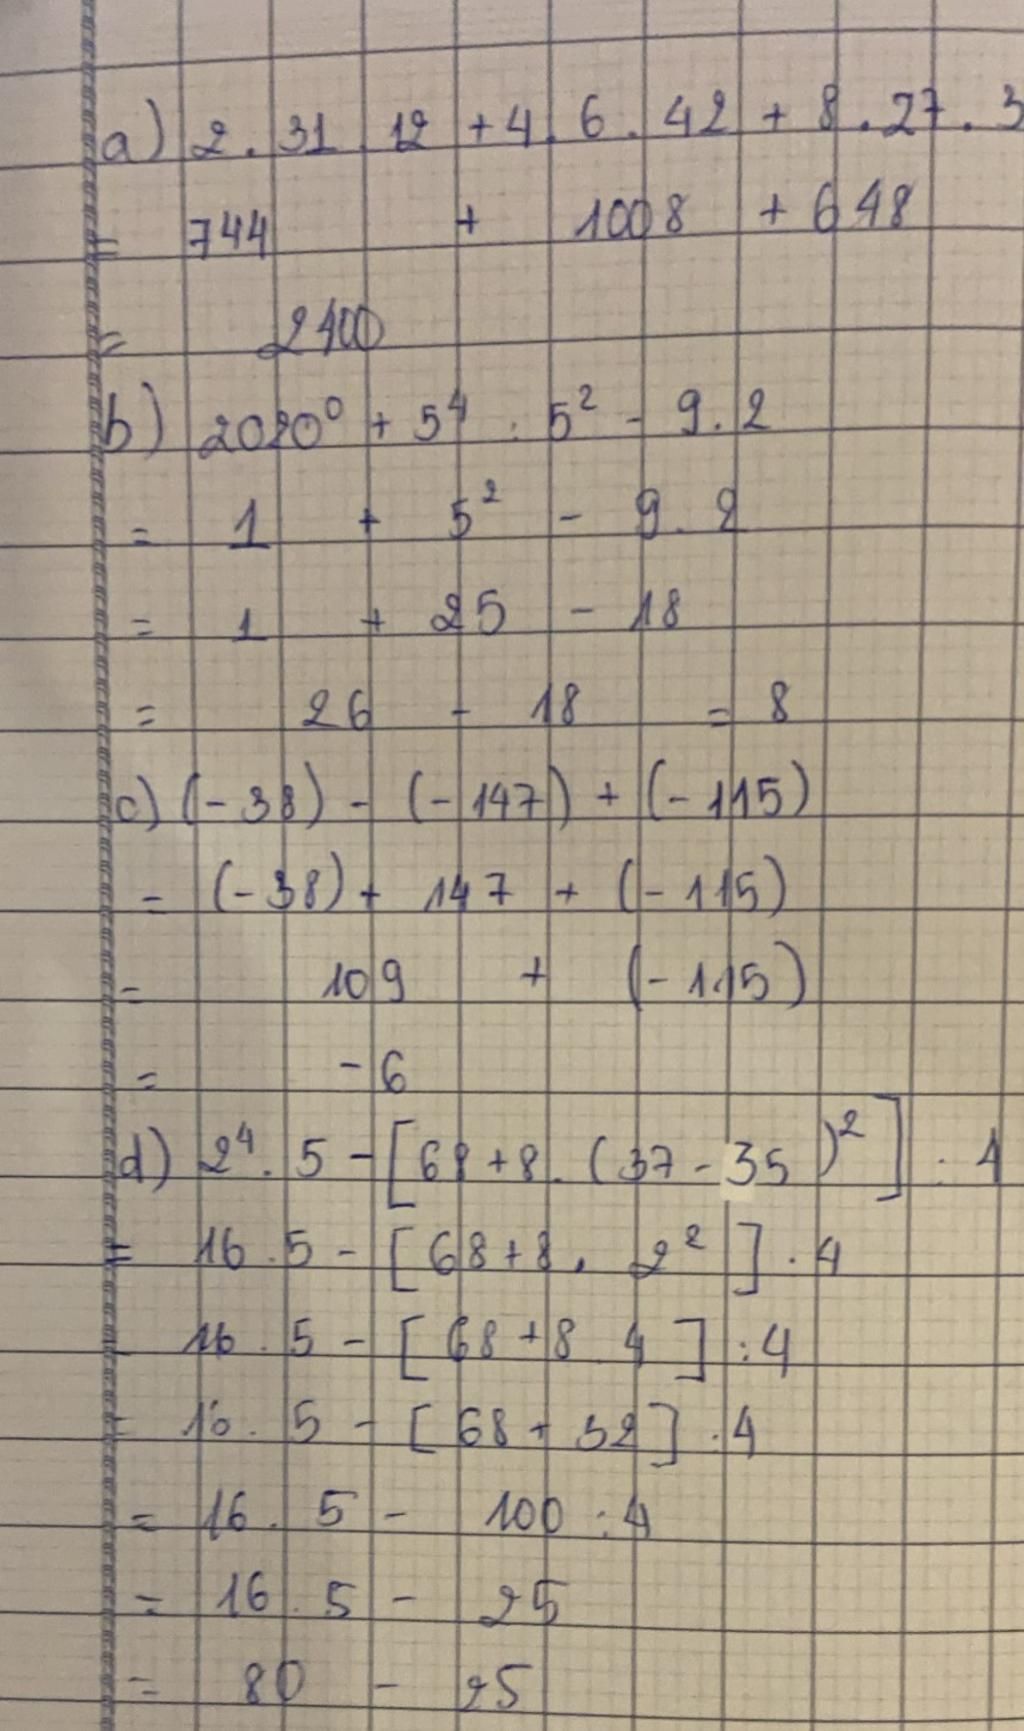 a) 2 . 31 . 12 + 4 . 6 . 42 + 8 . 27 . 3
= 744 + 1008 + 648
= 2400
b) 2020⁰ + 5⁴ : 5² - 9 . 2
= 1 + 5² - 9 . 2
= 1 + 25 - 18
= 26 - 18 = 8
c) (-38) - (-147) + (-115)
= (-38) + 147 + (-115)
= 109 + (-115)
= -6
d) 2⁴ . 5 - [68 + 8 . (37 - 35)²] : 4
= 16 . 5 - [68 + 8 . 2²] : 4
= 16 . 5 - [68 + 8 . 4] : 4
= 16 . 5 - [68 + 32] : 4
= 16 . 5 - 100 : 4
= 16 . 5 - 25
= 80 - 25